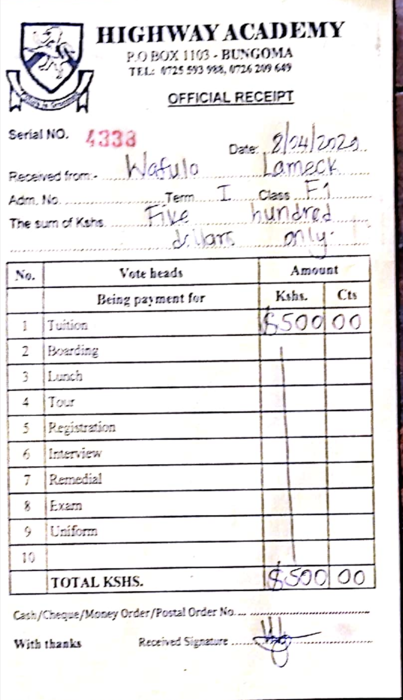 HIGHWAY ACADEMY
P.O BOX 1103 - BUNGOMA
TEL: 0725 593 988, 0726 209 649
OFFICIAL RECEIPT
Serial NO. 4338
Date: 8/04/2020
Received from:- Wafulo Lameck
Adm. No. Term I Class F1
The sum of Kshs. Five hundred
dollars only.
No. Vote heads Amount
Being payment for Kshs. Cts
1 Tuition $500 00
2 Boarding
3 Lunch
4 Tour
5 Registration
6 Interview
7 Remedial
8 Exam
9 Uniform
10
TOTAL KSHS. $500 00
Cash/Cheque/Money Order/Postal Order No.
With thanks Received Signature